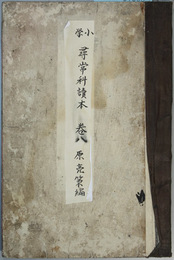 小學
尋常科讀本 卷八 原亮策編